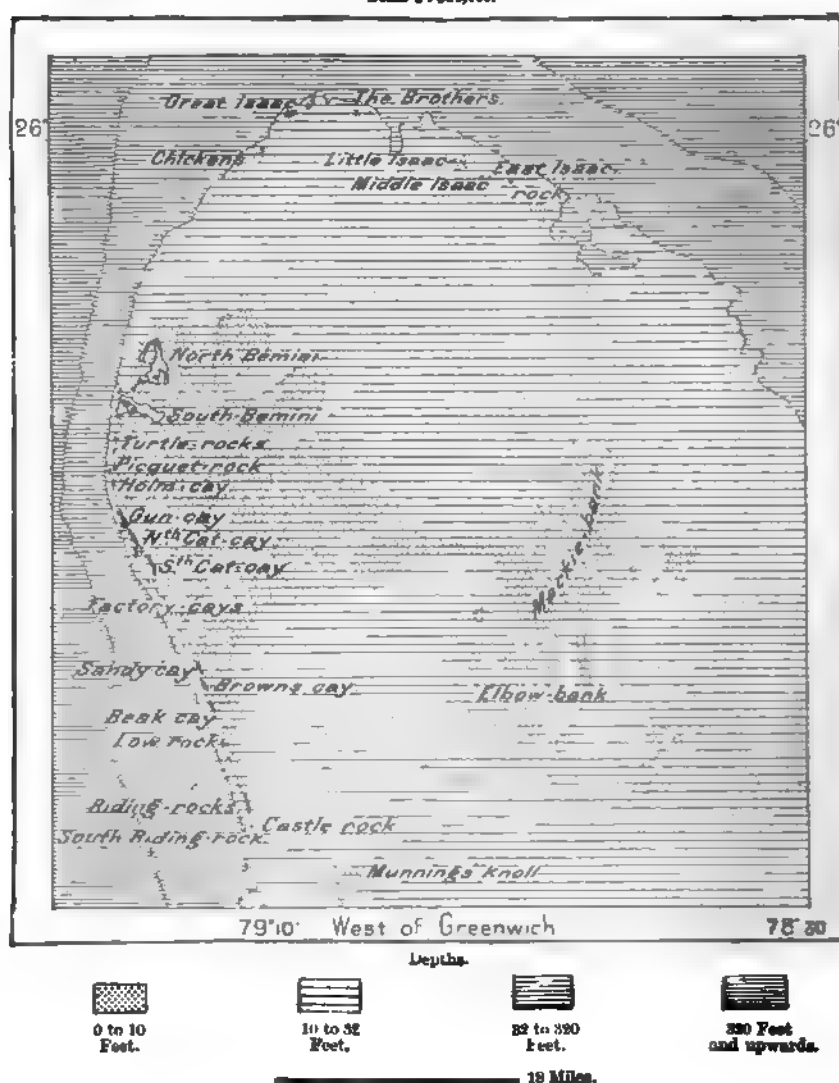 Great Isaac The Brothers
26° 26°
Chickens Little Isaac East Isaac
Middle Isaac rock
North Bemini
South Bemini
Turtle-rocks
Picquet-rock
Holm-cay
Gun-cay
Nth Cat-cay
Sth Cat-cay
Mackie-bank
Factory-cays
Sandy cay
Browns cay Elbow-bank
Beak cay
Low rock
Riding-rocks
Castle rock
South Riding-rock
Munnings Knoll
79°10' West of Greenwich
Depths.
0 to 10 Feet.
10 to 32 Feet.
32 to 320 Feet.
320 Feet and upwards.